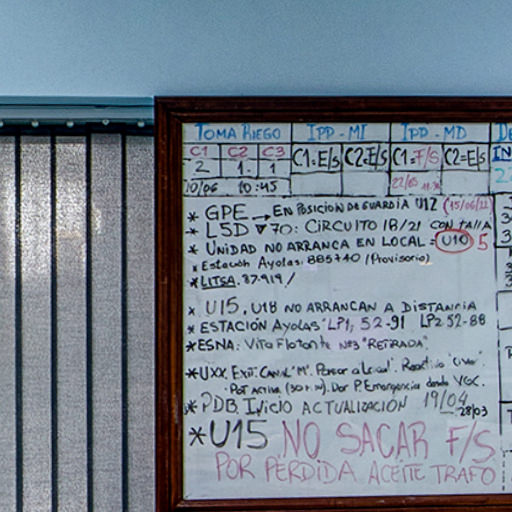 TOMA RIEGO IPP - MI IPP - MD
C1 C2 C3 C1.E/S C2=E/S C1=F/S C2=E/S IN
2 1. 1 22/05
10/06 10:45
* GPE → EN POSICION DE GUARDIA U12 (15/06/22
* LSD ▼ 70: CIRCUITO 1B/21 CON FALLA
* UNIDAD NO ARRANCA EN LOCAL = U10 5
* Estación Ayolas: 885440 (Provisorio)
* LITSA. 87-919 /
* U15, U18 NO ARRANCAN A DISTANCIA
* ESTACIÓN Ayolas "LP1, 52-91 LP2 52-88
* ESNA: Vita Flotante Nº3 "RETIRADA"
* UXX Exit. Canal "M". Pasar a Local". Reactivo
"Pot Activa (30 MW). Dar P. Emergencia desde VGC.
* PDB INICIO ACTUALIZACIÓN 19/04
28/03
* U15 NO SACAR F/S
POR PÉRDIDA ACEITE TRAFO